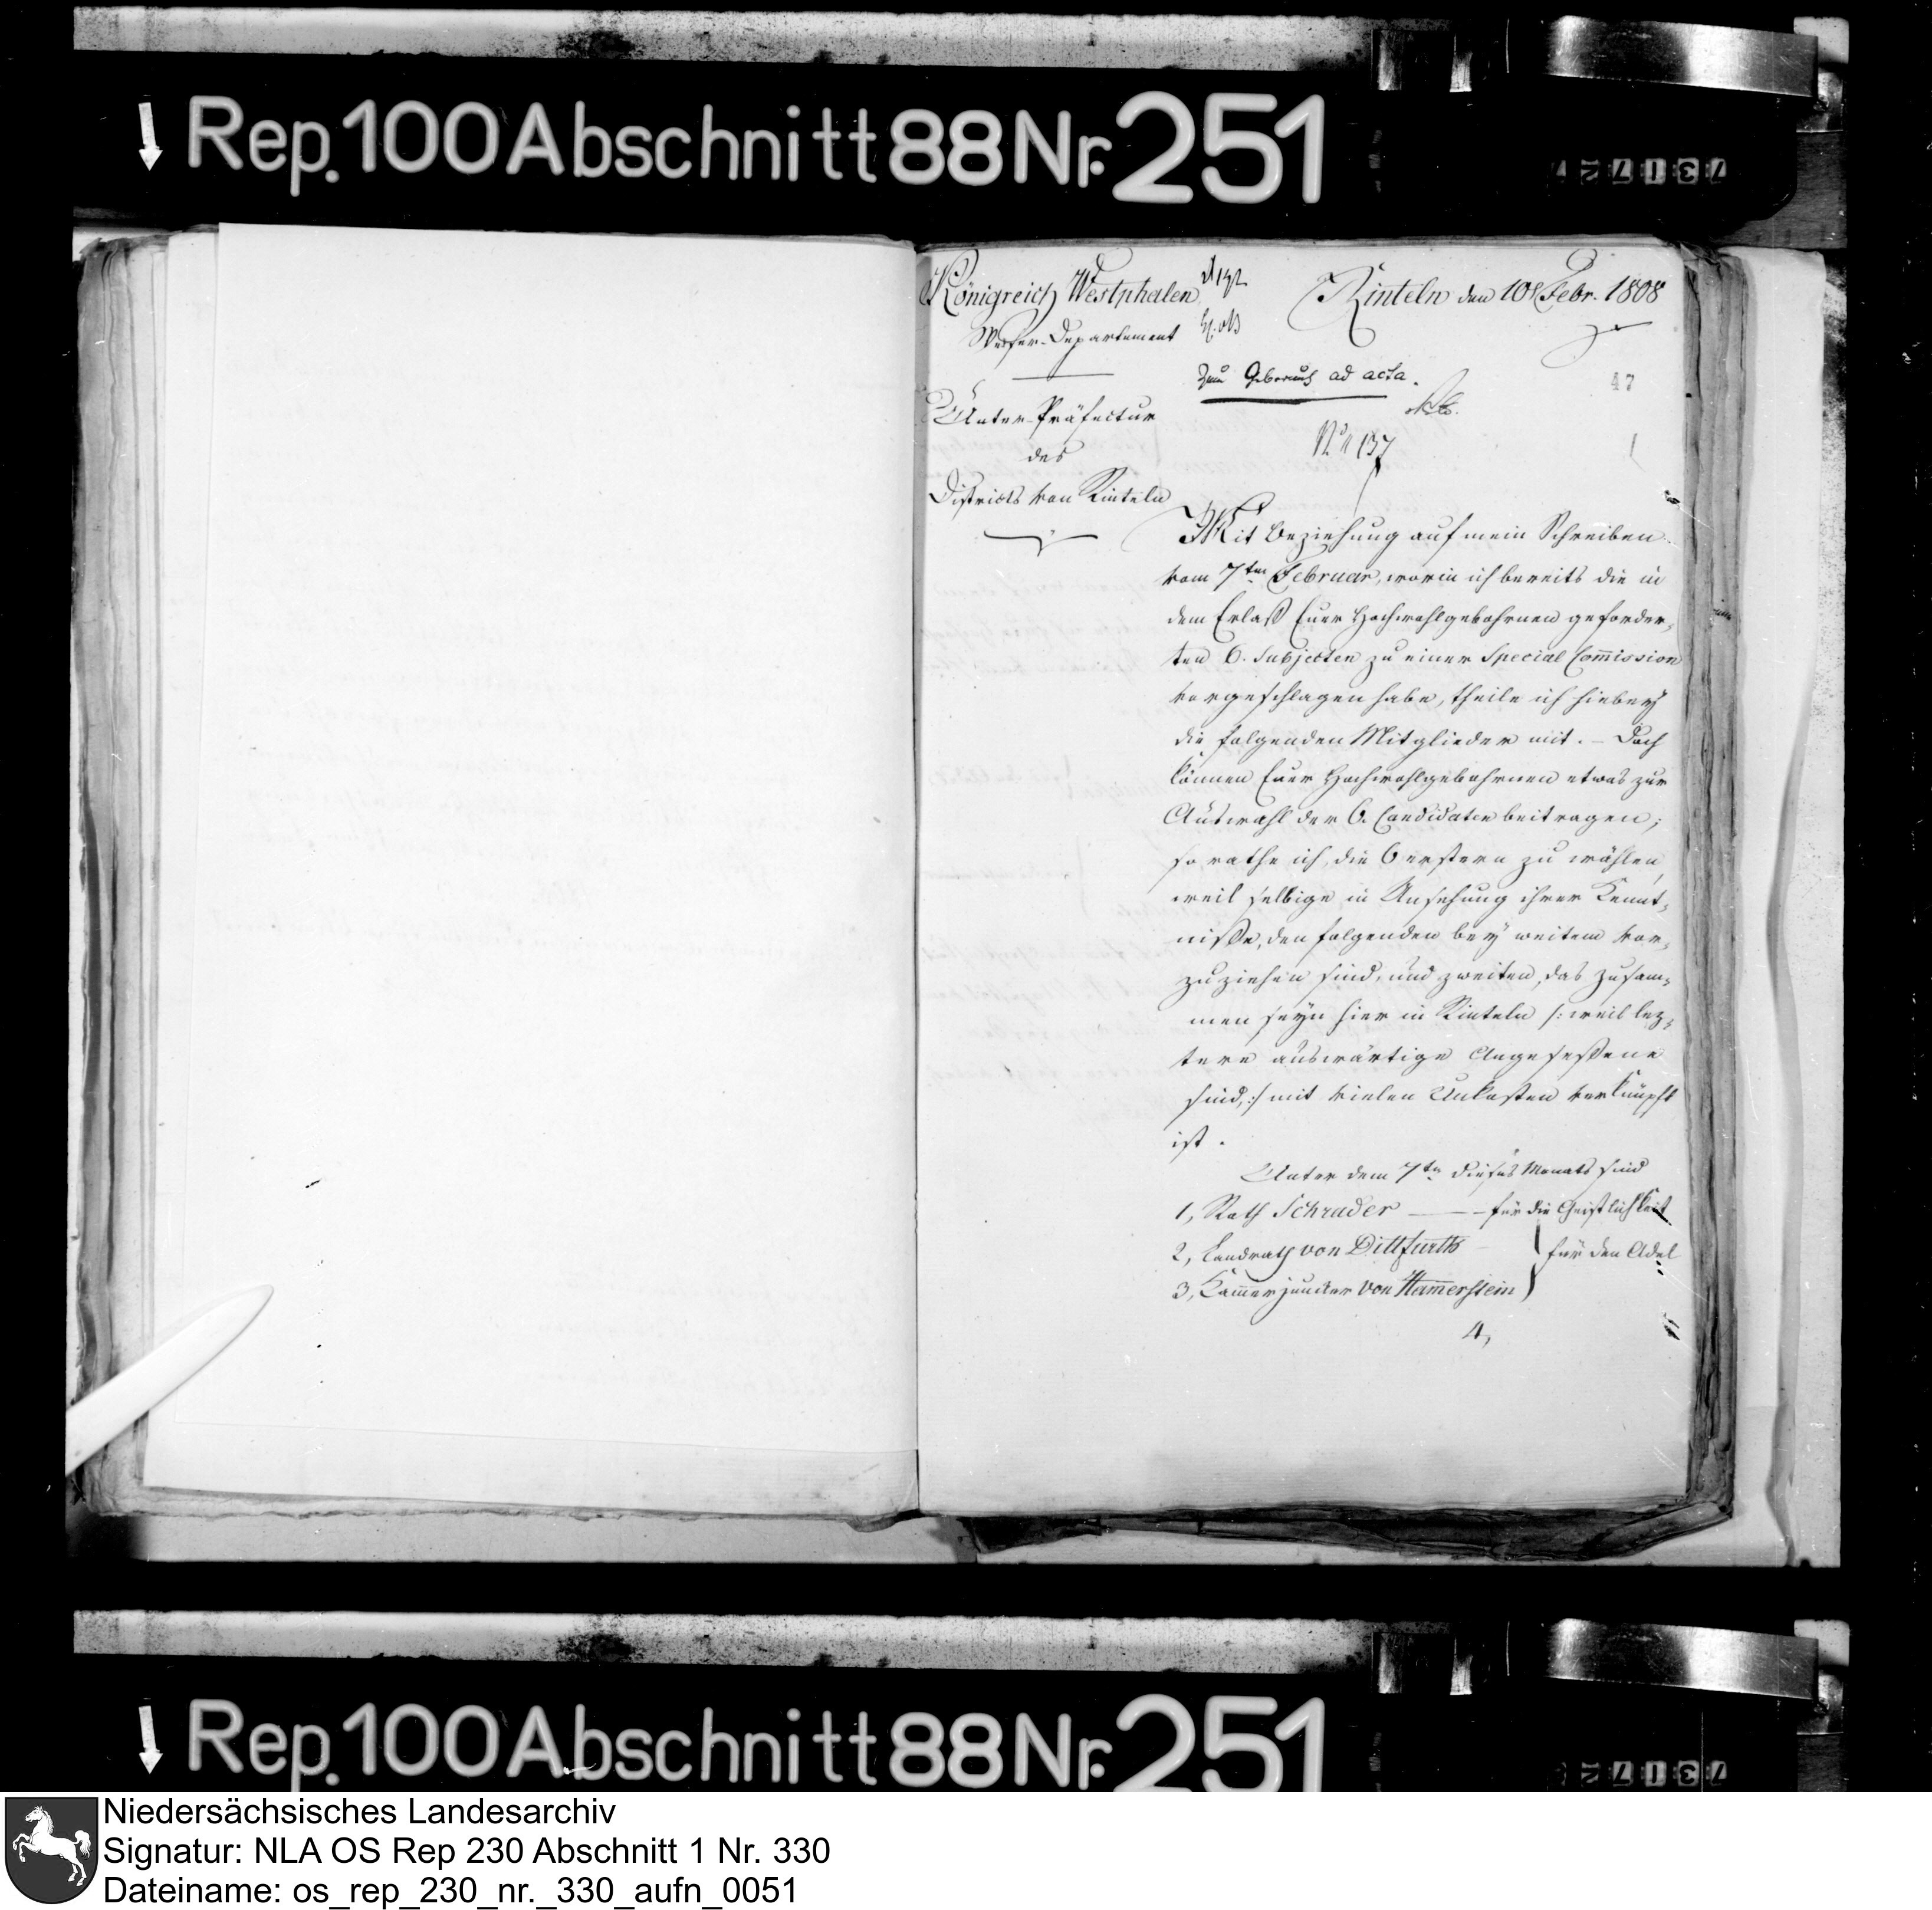 Rep. 100 Abschnitt 88 Nr. 251
731727
Königreich Westphalen
Weser-Departement
Unter-Präfectur
des
Districts von Rinteln
Rinteln den 10t Febr. 1808
Zum Gebrauch ad acta.
47
No 137
1
Mit Beziehung auf mein Schreiben
vom 7ten Februar, worin ich bereits die in
dem Erlaß Euer Hochwohlgebohrnen geforder-
ten 6. Subjecten zu einer Special Com̅ission
vorgeschlagen habe, theile ich hiebey
die folgenden Mitglieder mit. – Doch
können Euer Hochwohlgebohrnen etwas zur
Auswahl der 6. Candidaten beitragen;
so rathe ich, die 6 erstern zu wählen,
weil selbige in Ansehung ihrer Kennt-
niße, den folgenden bey weitem vor-
zuziehen sind, und zweiten, das Zusam-
men seyn hier in Rinteln /: weil lez-
tere auswärtige Angeseßene
sind, :/ mit vielen Unkosten verknüpft
ist.
Unter dem 7ten dieses Monats sind
1, Rath Schrader —— für die Geistlichkeit
2, Landrath von Dittfurth
für den Adel
3, Kam̅erjuncker von Ham̅erstein
4,
Rep. 100 Abschnitt 88 Nr. 251
73172
Niedersächsisches Landesarchiv
Signatur: NLA OS Rep 230 Abschnitt 1 Nr. 330
Dateiname: os_rep_230_nr._330_aufn_0051